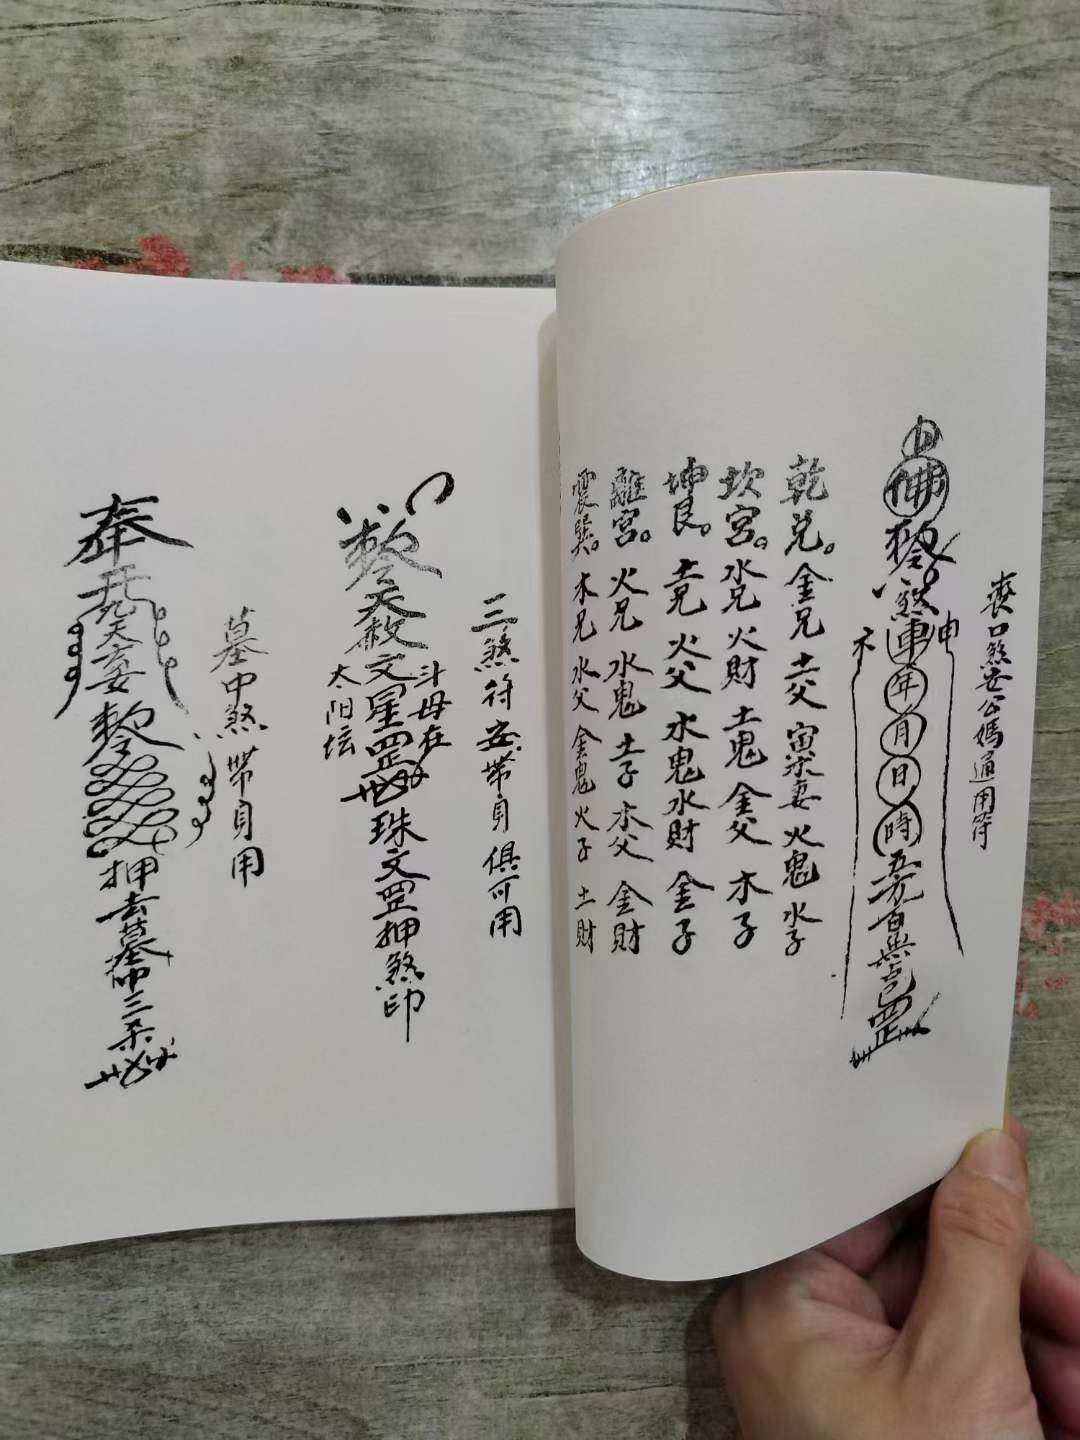 喪口煞安公媽通用符
佛敕煞車年月日時
神
乾兑。金兄 土父 寅木妻 火鬼 水子
坎宮。水兄 火財 土鬼 金父 木子
坤艮。土兄 火父 水鬼 水財 金子
離宮。火兄 水鬼 土子 木父 金財
震巽。木兄 水父 金鬼 火子 土財
三煞符安帶身俱可用
斗母在
敕天赦文星罡珠文罡押煞印
太阳坛
墓中煞帶身用
奉九天玄敕押去墓中三杀